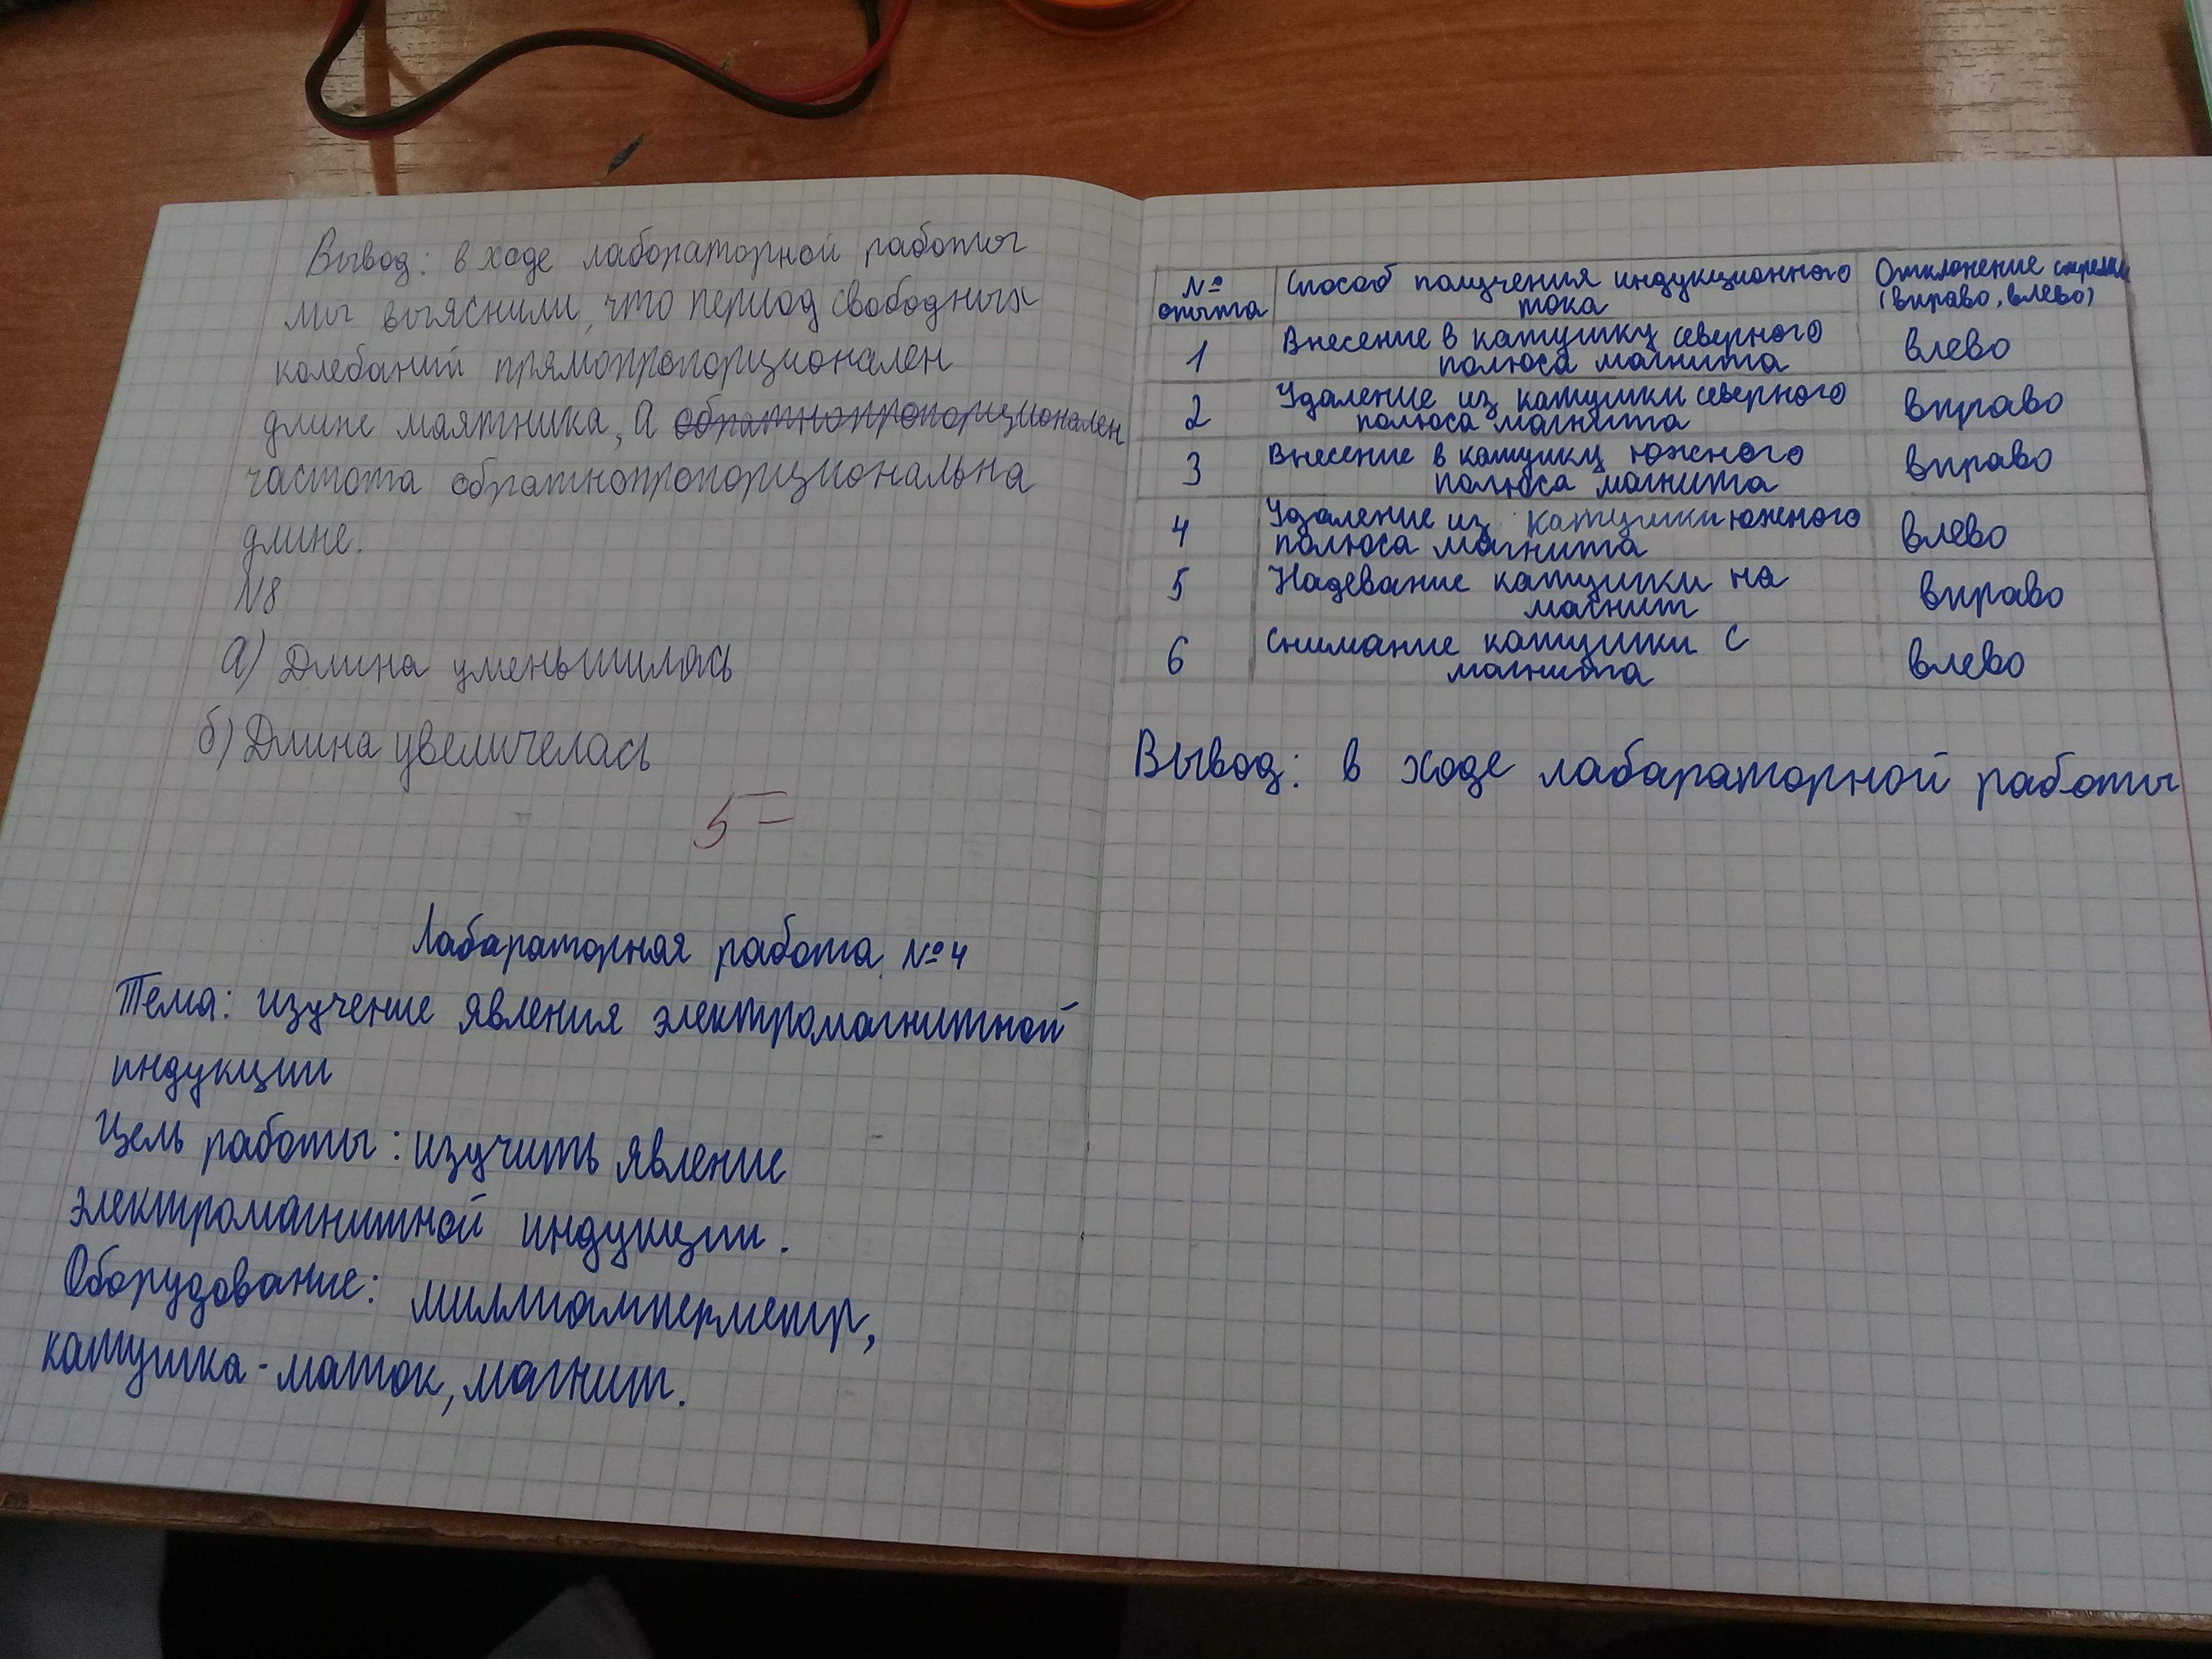 Вывод: в ходе лабораторной работы
мы выяснили, что период свободных
колебаний прямопропорционален
длине маятника, а обратнопропорционален
частота обратнопропорциональна
длине.
N8
а) Длина уменьшилась
б) Длина увеличелась
5=
Лабараторная работа №4
Тема: изучение явления электромагнитной
индукции
Цель работы: изучить явление
электромагнитной индукции.
Оборудование: миллиамперметр,
катушка-маток, магнит.
№ опыта | Способ получения индукционного тока | Отклонение стрелки (вправо, влево)
1 | Внесение в катушку северного полюса магнита | влево
2 | Удаление из катушки северного полюса магнита | вправо
3 | Внесение в катушку южного полюса магнита | вправо
4 | Удаление из катушки южного полюса магнита | влево
5 | Надевание катушки на магнит | вправо
6 | Снимание катушки с магнита | влево
Вывод: в ходе лабараторной работы